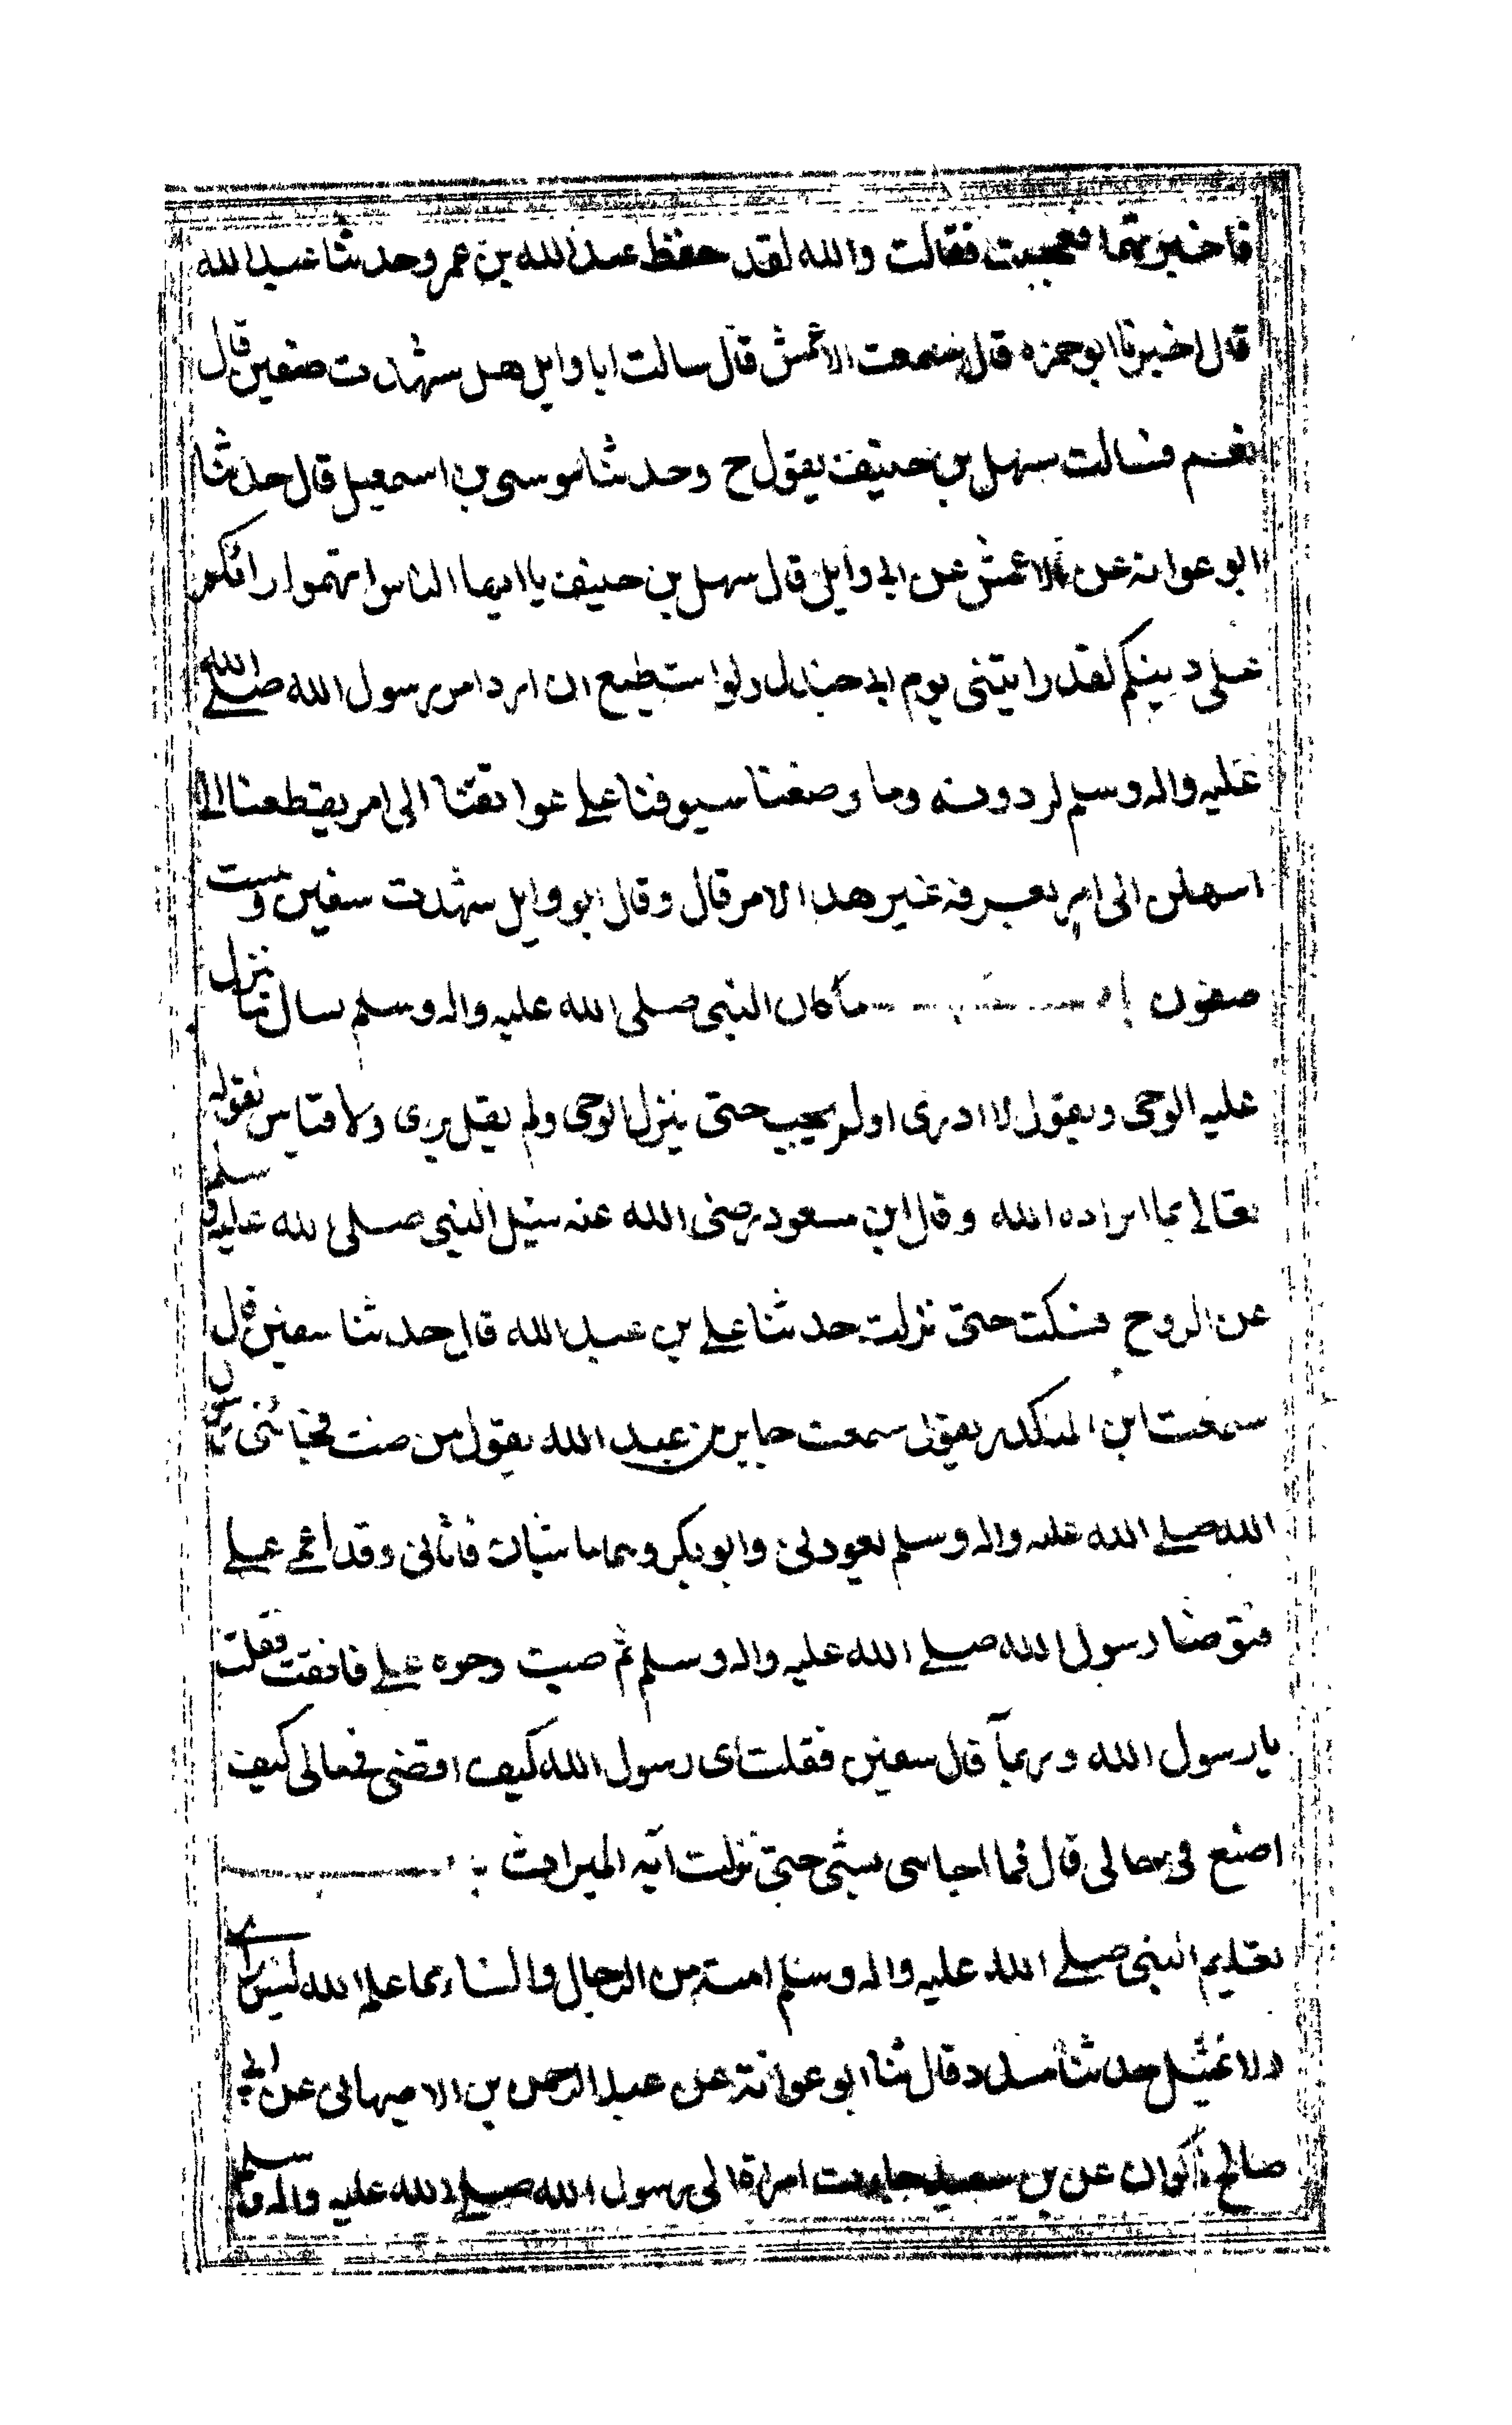 فاخبرتها فعجبت فقالت والله لقد حفظ عبد الله بن عمر وحدثنا عبد الله
قال اخبرنا ابو حمزه قال سمعت الاعمش قال سالت ابا وايل هل شهدت صفين قال
نعم فسالت سهل بن حنيف يقول ح وحدثنا موسى بن اسمعيل قال حدثنا
ابو عوانه عن الاعمش عن ابى وايل قال سهل بن حنيف يا ايها الناس اتهموا رائكم
على دينكم لقد رايتنى يوم ابى جندل ولو استطيع ان ارد امر رسول الله صلى الله
عليه واله وسلم لرددته وما وضعنا سيوفنا على عواتقنا الى امر يقطعنا الا
اسهلن الى امر نعرفه غير هذا الامر قال وقال ابو وايل شهدت سفين وبئست
صفون ما كان النبى صلى الله عليه واله وسلم يسال مما ينزل
عليه الوحى ويقول لا ادرى او لم يجب حتى ينزل الوحى ولم يقل برى ولا قياس لقوله
تعالى بما اراده الله وقال ابن مسعود رضى الله عنه سئل النبى صلى الله عليه وسلم
عن الروح فسكت حتى نزلت حدثنا على بن عبد الله قال حدثنا سفين قال
سمعت ابن المنكدر يقول سمعت جابر بن عبد الله يقول مرضت فجائنى رسول
الله صلى الله عليه واله وسلم يعودنى وابو بكر وهما ماشيان فاتانى وقد اغمى على
فتوضا رسول الله صلى الله عليه واله وسلم ثم صب وضوه على فافقت فقلت
يا رسول الله وربما قال سفين فقلت اى رسول الله كيف اقضى فى مالى كيف
اصنع فى مالى قال فما اجابنى بشى حتى نزلت آيه الميراث
تعليم النبى صلى الله عليه واله وسلم امته من الرجال والنساء مما علمه الله ليس براى
ولا تمثيل حدثنا مسدد قال ثنا ابو عوانة عن عبد الرحمن بن الاصبهانى عن ابى
صالح ذكوان عن بن سعيد جاءت امراة الى رسول الله صلى الله عليه واله وسلم